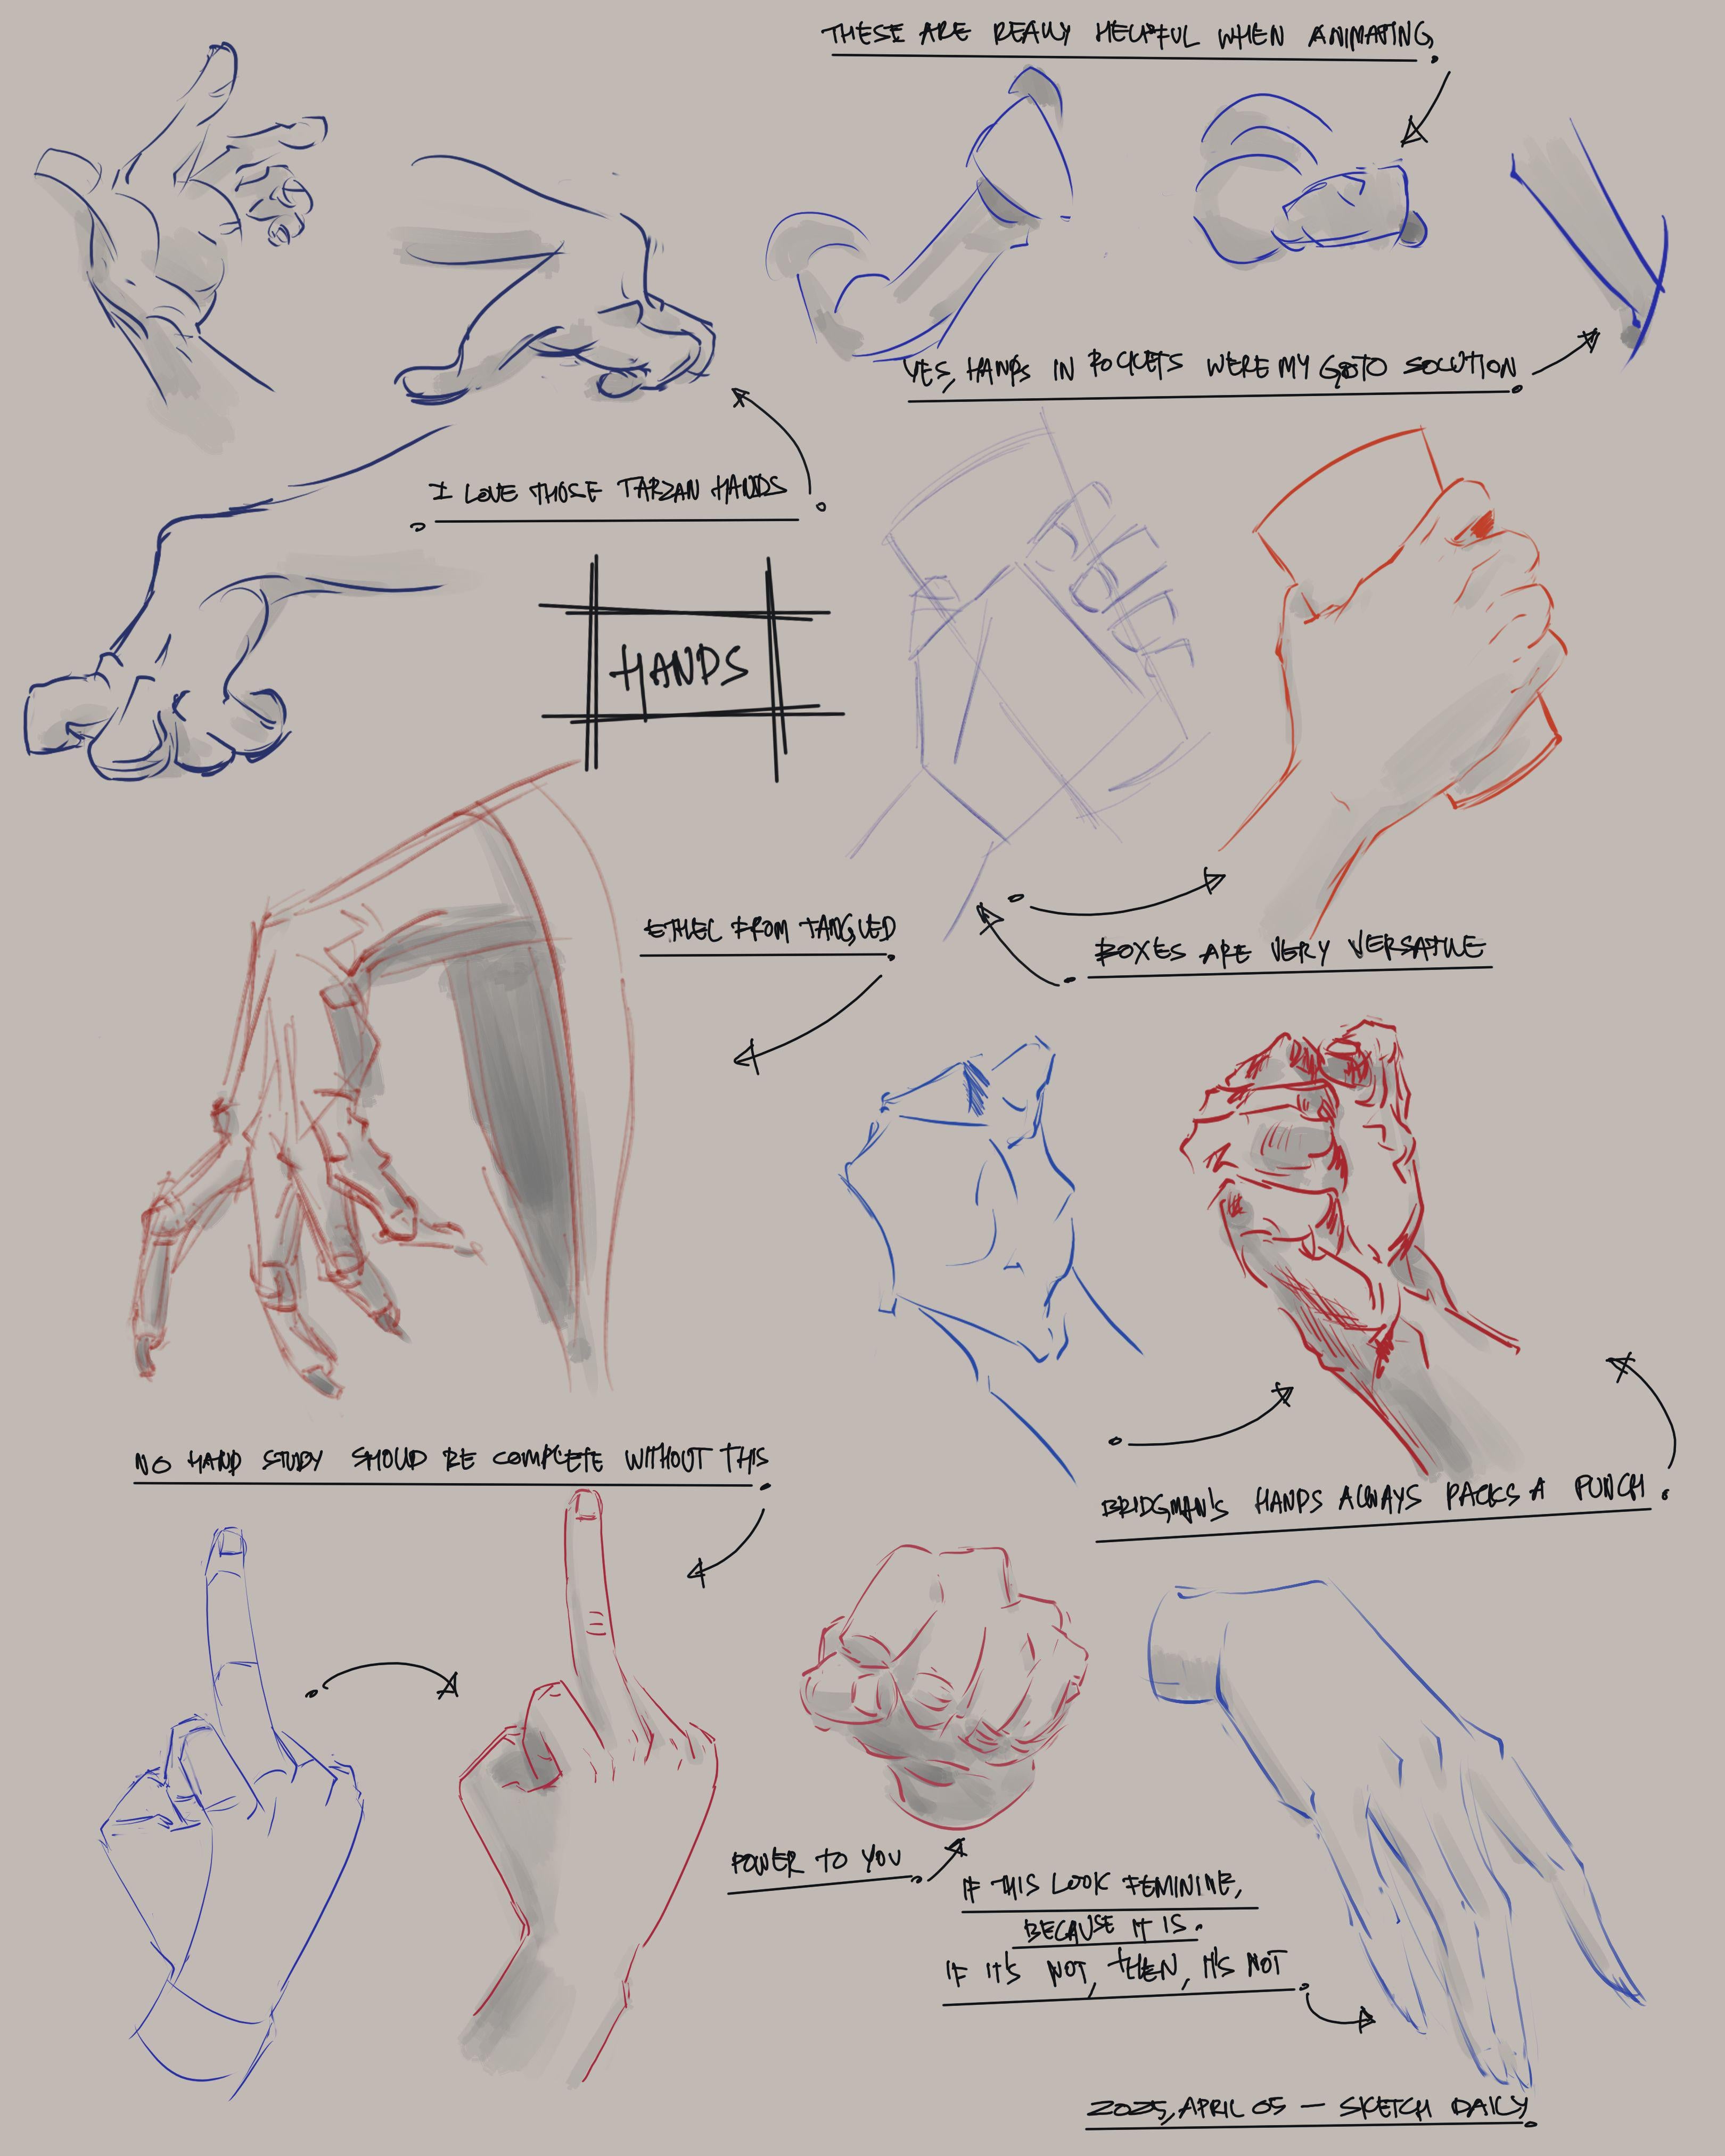 THESE ARE REALLY HELPFUL WHEN ANIMATING
YES, HANDS IN POCKETS WERE MY GOTO SOLUTION
I LOVE THOSE TARZAN HANDS
HANDS
ETHEL FROM TANGLED
BOXES ARE VERY VERSATILE
NO HAND STUDY SHOULD BE COMPLETE WITHOUT THIS
BRIDGMAN'S HANDS ALWAYS PACKS A PUNCH
POWER TO YOU
IF THIS LOOK FEMININE,
BECAUSE IT IS.
IF IT'S NOT, THEN, IT'S NOT
2025, APRIL 05 — SKETCH DAILY